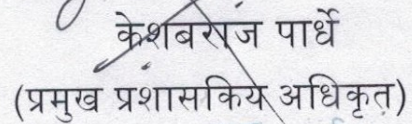 केशबराज पार्धे
(प्रमुख प्रशासकिये अधिकृत)